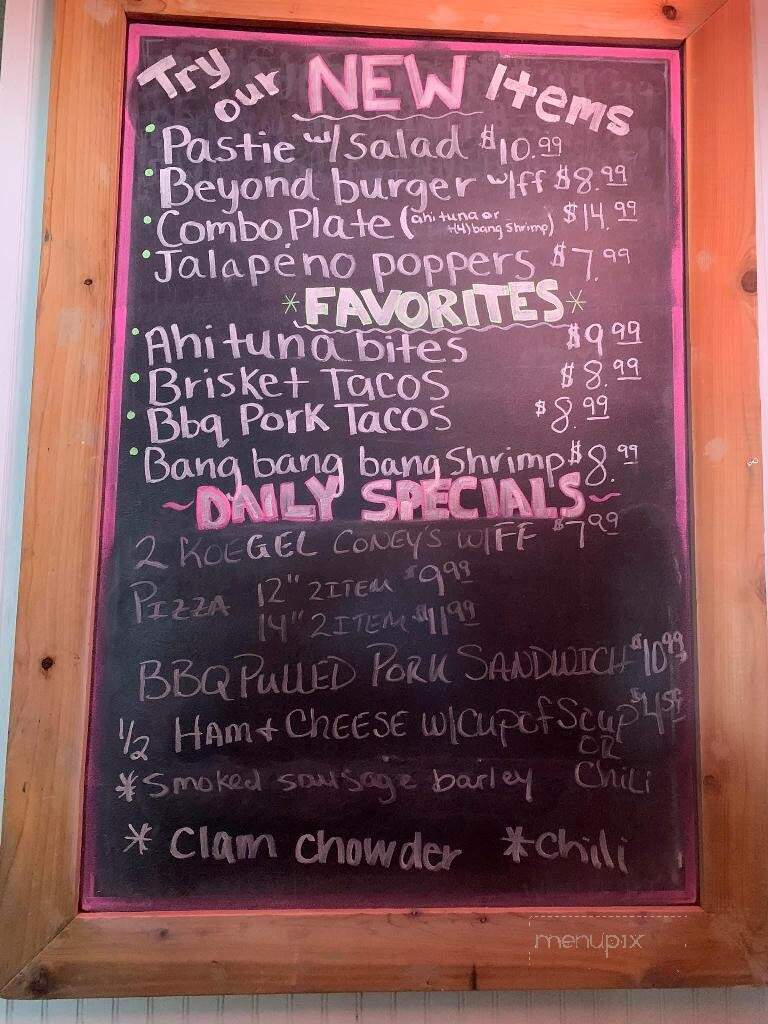 Try our NEW Items
Pastie w/Salad $10.99
Beyond burger w/ff $8.99
Combo Plate (ahi tuna or +(4) bang shrimp) $14.99
Jalapeño poppers $7.99
*FAVORITES*
Ahi tuna bites $9.99
Brisket Tacos $8.99
Bbq Pork Tacos $8.99
Bang bang bang Shrimp $8.99
~DAILY SPECIALS~
2 KOEGEL CONEY'S W/FF $7.99
PIZZA 12" 2 ITEM $9.99
14" 2 ITEM $11.99
BBQ PULLED PORK SANDWICH $10.99
1/2 HAM & CHEESE W/CUP OF SOUP
OR
CHILI
*Smoked sausage barley
*Clam chowder *chili
menupix